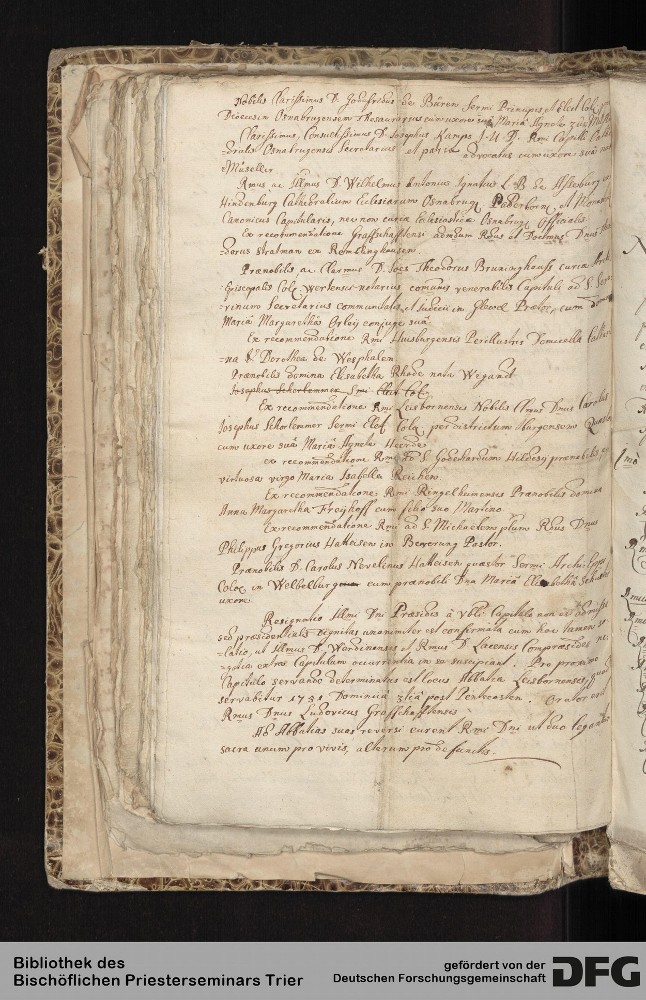 Nobilis Clarissimus D. Godefridus de Büren Sermi Principis et Elect Col:
Dioecesin Osnabrugensem Thesaurarius cum uxore sua Maria Agnete
Clarissimus, Consultissimus D. Josephus Kamps J. U. D. Rmi Capituli Cathe
-dralis Osnabrugensis Secretarius et patriæ advocatus cum uxore suâ
Müseller
Rmus ac Illmus D. Wilhelmus Antonius Ignatius L. B. de Assebürg
Hindenburg Cathedralium Ecclesiarum Osnabrug, Paderborn, et
Canonicus Capitularis, nec non curiæ Ecclesiasticæ Osnabrug Officialis
Ex recommendatione Graffschafftensi admdum Rdus et Doctmus Dnus
-dorus Stratman ex Remelinghausen
Prænobilis, ac Clarmus D. Joes Theodorus Bruninghauss curiæ Archi
-Episcopalis Colo: Werlensis notarius communis venerabilis Capituli ad S.
-rinum Secretarius communitatis, et Judicii in Prætor, cum
Maria Margaretha Orleij conjuge suâ
Ex recommendatione Rmi Huisburgensis Perillustris Domicella Catha
-na Dorothea de Wesphalen
Prænobilis domina Elisabetha Rhode nata Wegandt
Josephus Schorlemmer Smi Elect Col:
Ex recommendatione Rmi Leisbornensis Nobilis Clmus Dnus Carolus
Josephus Schorlemmer Sermi Elect Colo: per districtum Iburgensem
cum uxore suâ Maria Agnete Heerde
ex recommendatione Rmi ad S. Godehardum Hildesij prænobilis
virtuosa virgo Maria Isabella Reichen
Ex recommendatione Rmi Ringelheimensis Prænobilis domina
Anna Margaretha Freijhoff cum filio suo Martino
Ex recommendatione Rmi ad S. Michaelem plum Rdus Dnus
Philippus Gregorius Hatteisen in Beverung Pastor.
Prænobilis D. Carolus Nevelinus Hatteisen quæstor Sermi Archi Eppi
Coloæ in Welbelburg cum prænobili Dna Mariâ Elisabethâ
uxore
Resignatio Illmi Dni Præsidis à Vbli Capitulo non est admissa
sed præsidentialis dignitas unanimiter est confirmata cum hoc tamen
-latio, ut Illmus D. Werdinensis et Rmus D. Lacensis Compræsides ne
-gotia extra Capitulum occurrentia in se suscipiant. Pro proximo
Capitulo servando determinatus est locus Abbatia Leisbornensis, quod
servabitur Dominicâ 3tiâ post Pentecosten. Orator erit
Rmus Dnus Ludovicus Graffschafftensis
Ad Abbatias suas reversi curent Rmi Dni ut duo legantur
sacra unum pro vivis, alterum pro defunctis.
Bibliothek des
Bischöflichen Priesterseminars Trier
gefördert von der
Deutschen Forschungsgemeinschaft
DFG